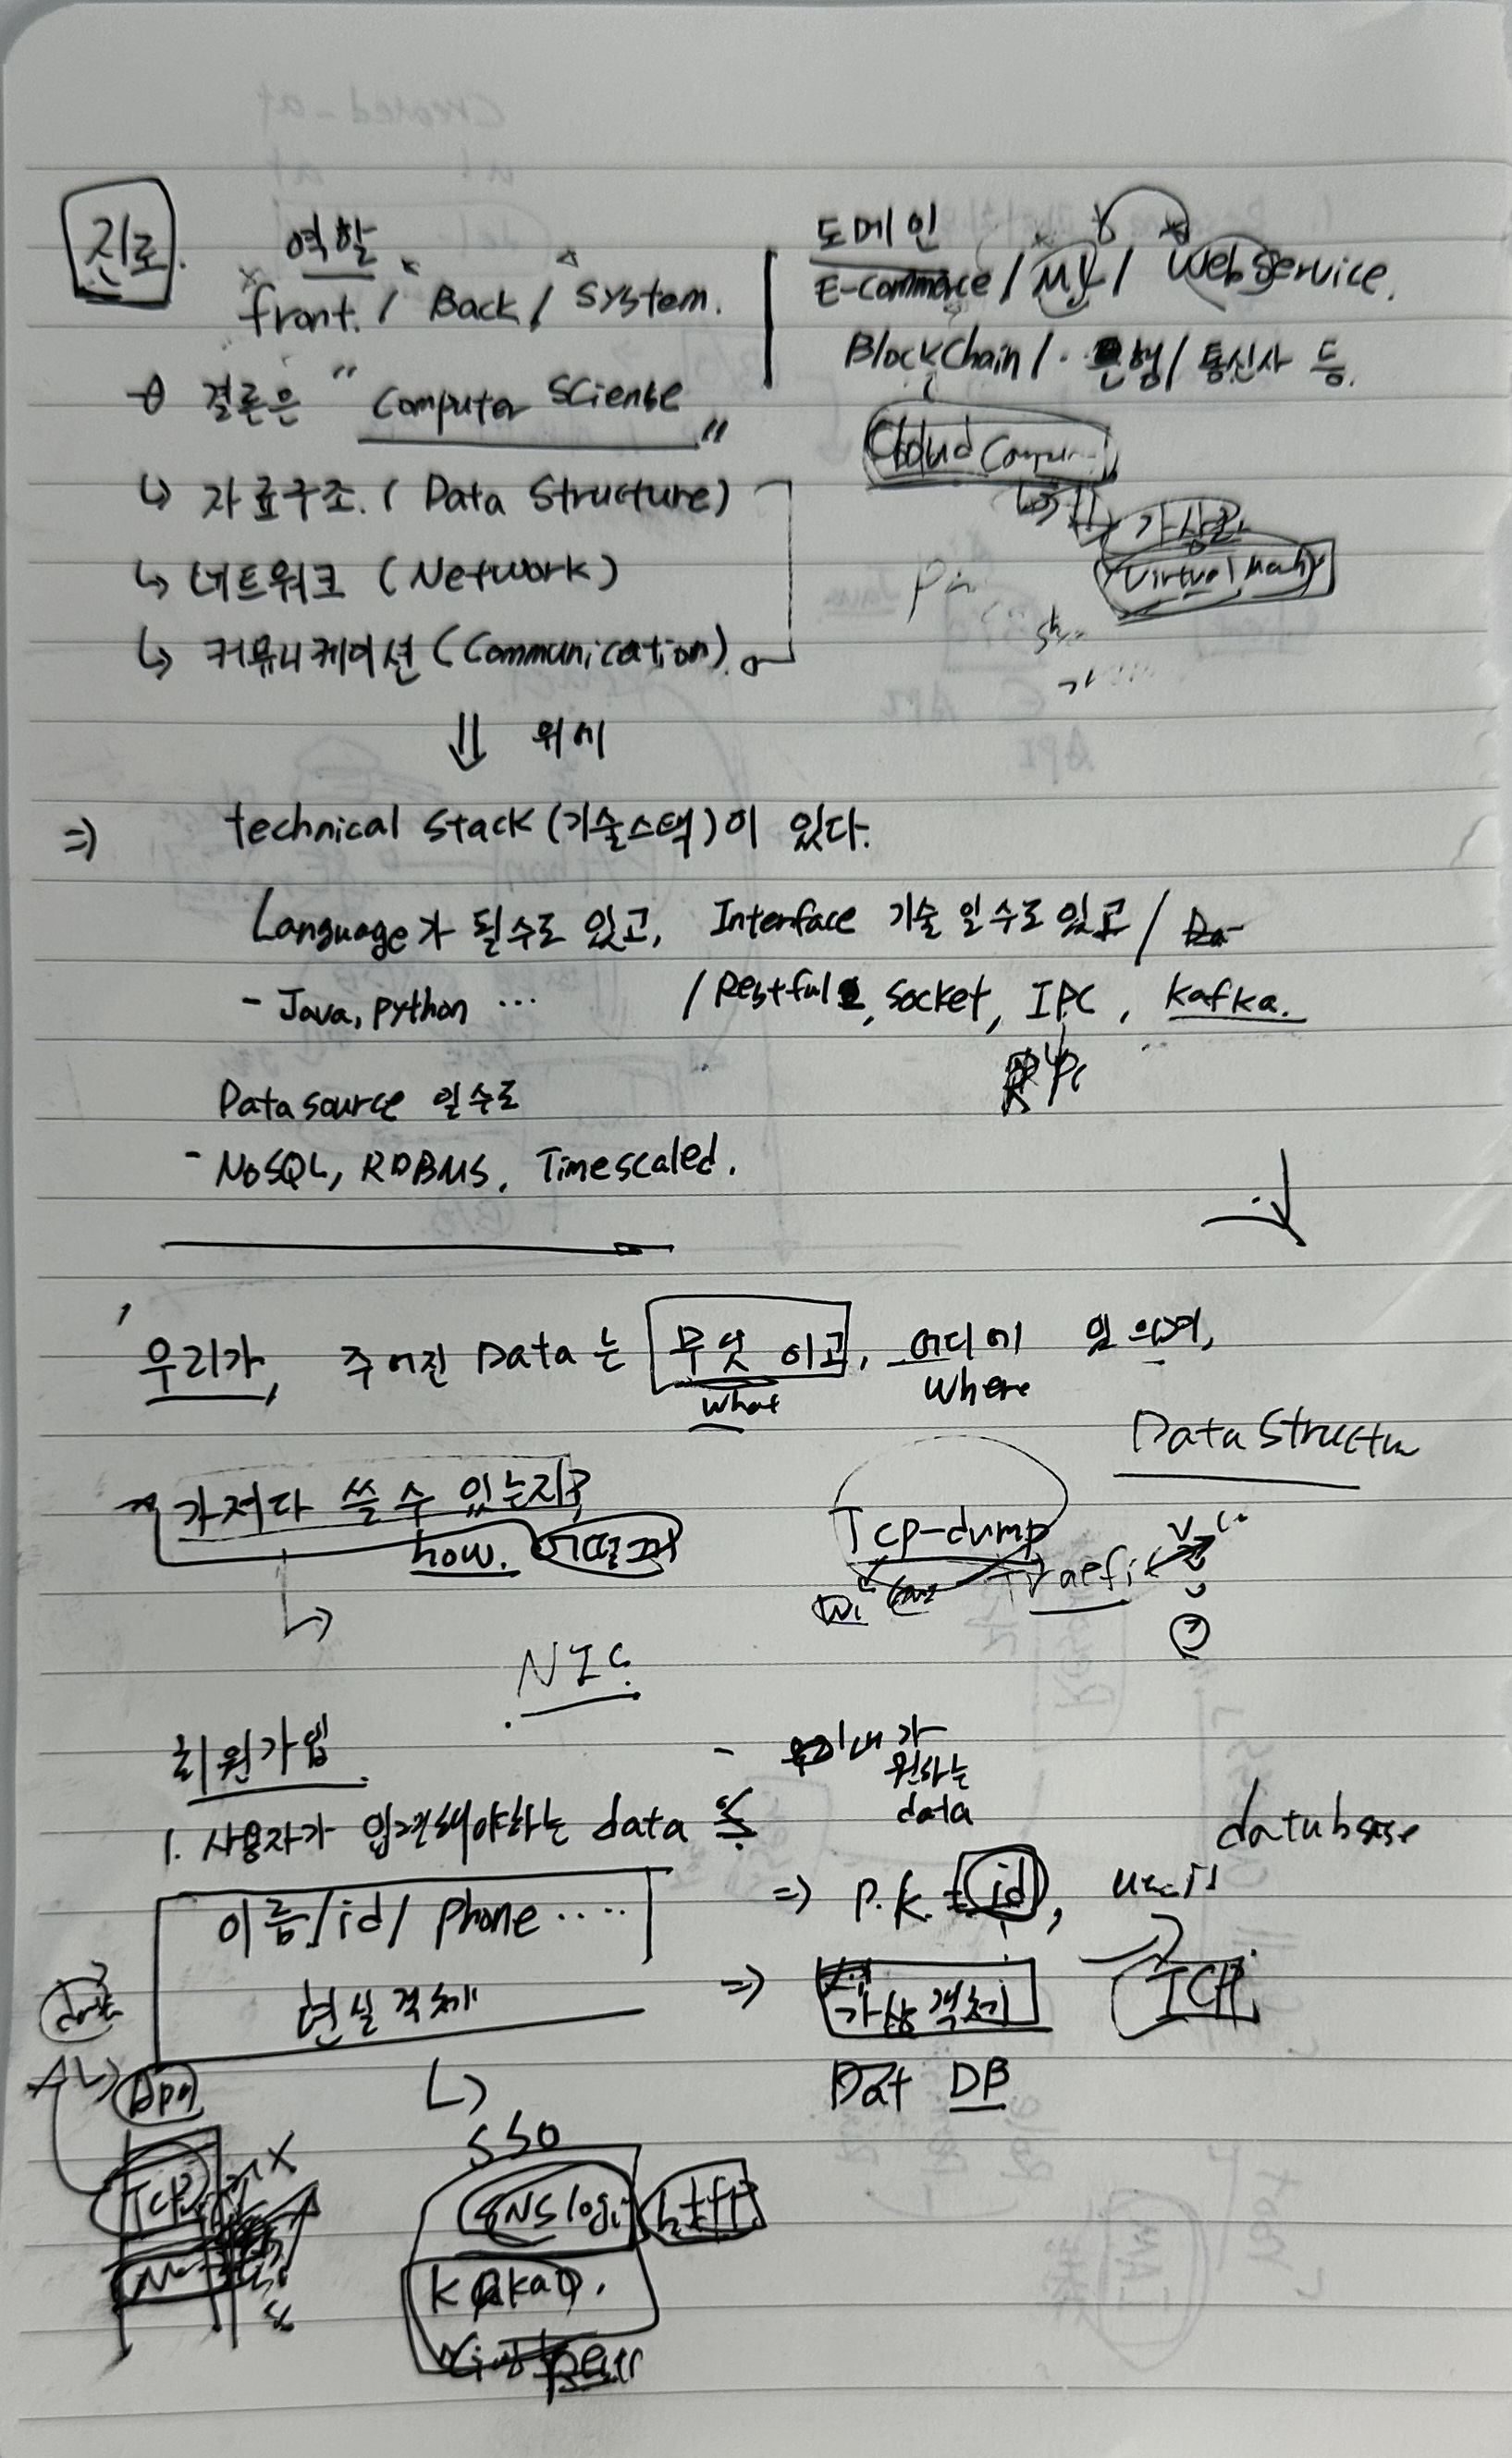 진로.
역할
front. / Back / System.
도메인
E-commerce / ML / Web Service.
BlockChain / 은행 / 통신사 등.
결론은 " Computer Science "
Cloud
↳ 자료구조. ( Data Structure )
가상화
↳ 네트워크 ( Network )
Virtual
↳ 커뮤니케이션 ( Communication ).
⇓ 위에
⇒ technical stack (기술스택)이 있다.
Language가 될수도 있고, Interface 기술 일수도 있고 /
- Java, python ... / Restful, Socket, IPC, kafka.
Data source 일수도
- NoSQL, RDBMS, Timescaled.
우리가, 주어진 Data는 무엇 이고, 어디에 있으며,
what where
Data Structu
가져다 쓸 수 있는지?
how. 어떻게
Tcp-dump
Traefi
NIC.
회원가입
- 내가
원하는
data
1. 사용자가 입력해야하는 data
database
이름/id/ phone .....
⇒ P.K. - id,
현실객체
⇒ 가상객체 TCP
DB
SSO
TCP
SNS logi http
kakao.